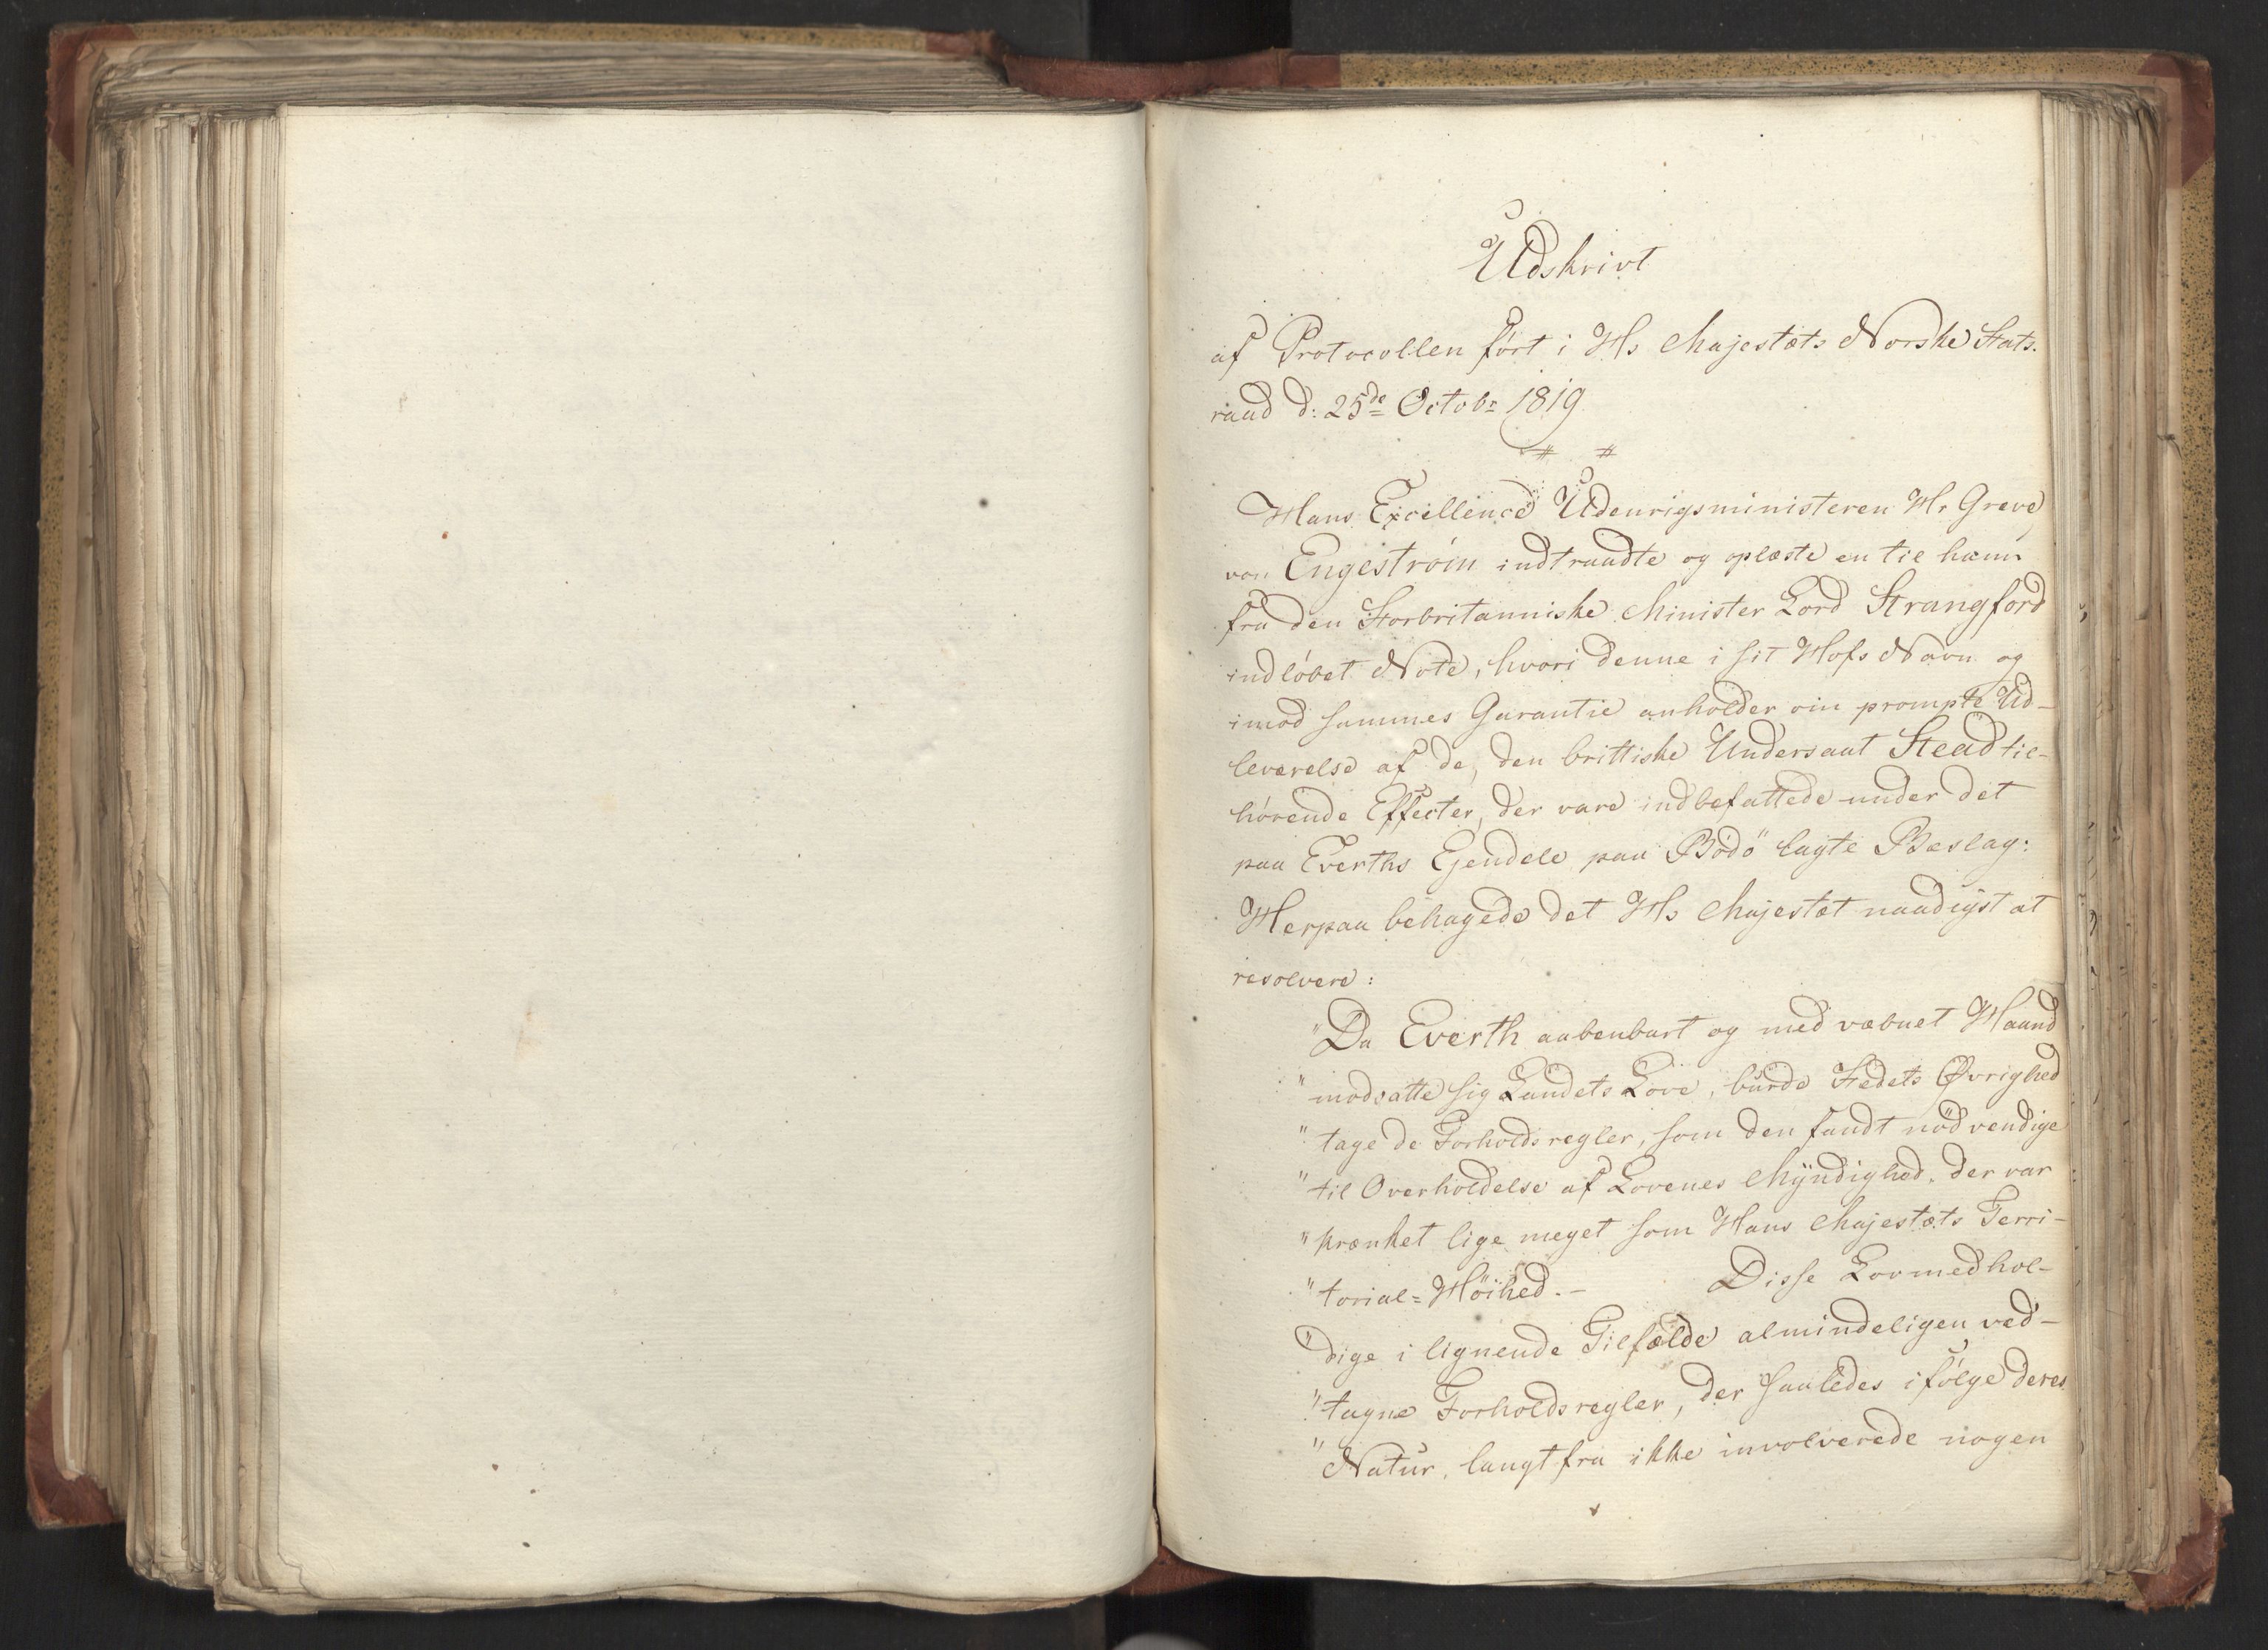 Udskrivt
af Protocollen ført i Hs Majestæts Norske Stats-
raad d: 25de Octobr 1819
# #
Hans Excellence Udenrigsministeren Hr Greve
von Engestrøm indtraadte og oplæste en til ham
fra den Storbritanniske Minister Lord Strangford
indløbet Note, hvori denne i sit Hofs Navn og
imod sammes Garantie anholder om prompte Ud-
leverelse af de, den brittiske Undersaat Stead til-
hørende Effecter, der vare indbefattede under det
paa Everths Ejendele paa Bødø lagte Beslag:
Herpaa behagede det Hs Majestæt naadigst at
resolvere:
"Da Everth aabenbart og med væbnet Haand
"modsatte sig Landets Love, burde Stedets Øvrighed
"tage de Forholdsregler, som den fandt nødvendige
"til Overholdelse af Lovenes Myndighed, der var
"krænket lige meget som Hans Majestæts Terri-
"torial-Høihed.- Disse Lovmedhol-
"dige i lignende Tilfælde almindeligen ved-
"tagne Forholdsregler, der saaledes ifølge deres
"Natur, langt fra ikke involverede nogen